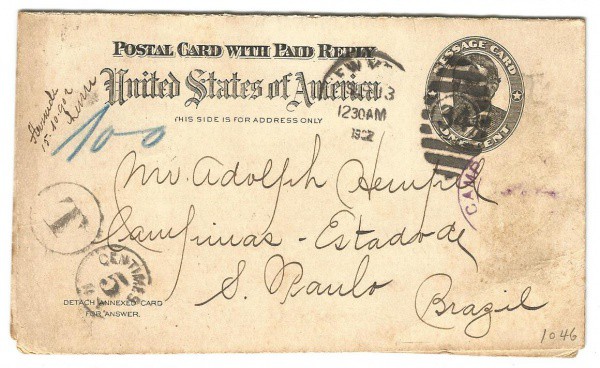 POSTAL CARD WITH PAID REPLY.
United States of America
THIS SIDE IS FOR ADDRESS ONLY
MESSAGE CARD
ONE CENT
NEW Y
3
1230AM
1902
15·10·902
100
Mr Adolph Hempel
Campinas - Estado de
S. Paulo
Brazil
CAMP
T
CENTIMES
5
N
DETACH ANNEXED CARD
FOR ANSWER.
1046